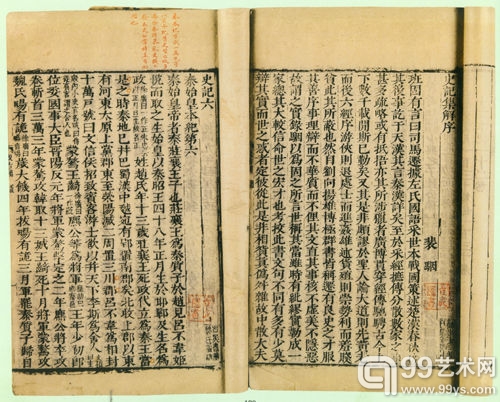 史記集解序
裴駰
班固有言曰司馬遷據左氏國語采世本戰國策述楚漢春秋接
其後事訖于天漢其言秦漢詳矣至於采經摭傳分散數家之事
甚多疏略或有抵捂亦其所涉獵者廣博貫穿經傳馳騁古今上
下數千載間斯已勤矣又其是非頗謬於聖人論大道則先黃老
而後六經序游俠則退處士而進姦雄述貨殖則崇勢利而羞賤
貧此其所蔽也然自劉向揚雄博極群書皆稱遷有良史之才服
其善序事理辯而不華質而不俚其文直其事核不虛美不隱惡
故謂之實錄駰以為固之所言世稱其當雖時有紕繆實勒成一
家總其大較信命世之宏才也考校此書文句不同有多有少莫
辯其實而世之惑者定彼從此是非相貿真偽舛雜故中散大夫
史記六
秦始皇本紀第六
秦始皇帝者秦莊襄王子也莊襄王為秦質子於趙見呂不韋姬
悅而取之生始皇以秦昭王四十八年正月生於邯鄲及生名為
政姓趙氏年十三歲莊襄王死政代立為秦王當
是之時秦地已并巴蜀漢中越宛有郢置南郡矣北收上郡以東
有河東太原上黨郡東至滎陽滅二周置三川郡呂不韋為相封
十萬戶號曰文信侯招致賓客游士欲以并天下李斯為舍人
蒙驁王齮麃公等為將軍王年少初即
位委國事大臣晉陽反元年將軍蒙驁擊定之二年麃公將卒攻
卷斬首三萬三年蒙驁攻韓取十三城王齮死十月將軍蒙驁攻
魏氏暘有詭歲大饑四年拔暘有詭三月軍罷秦質子歸自
99艺术网
www.99ys.com